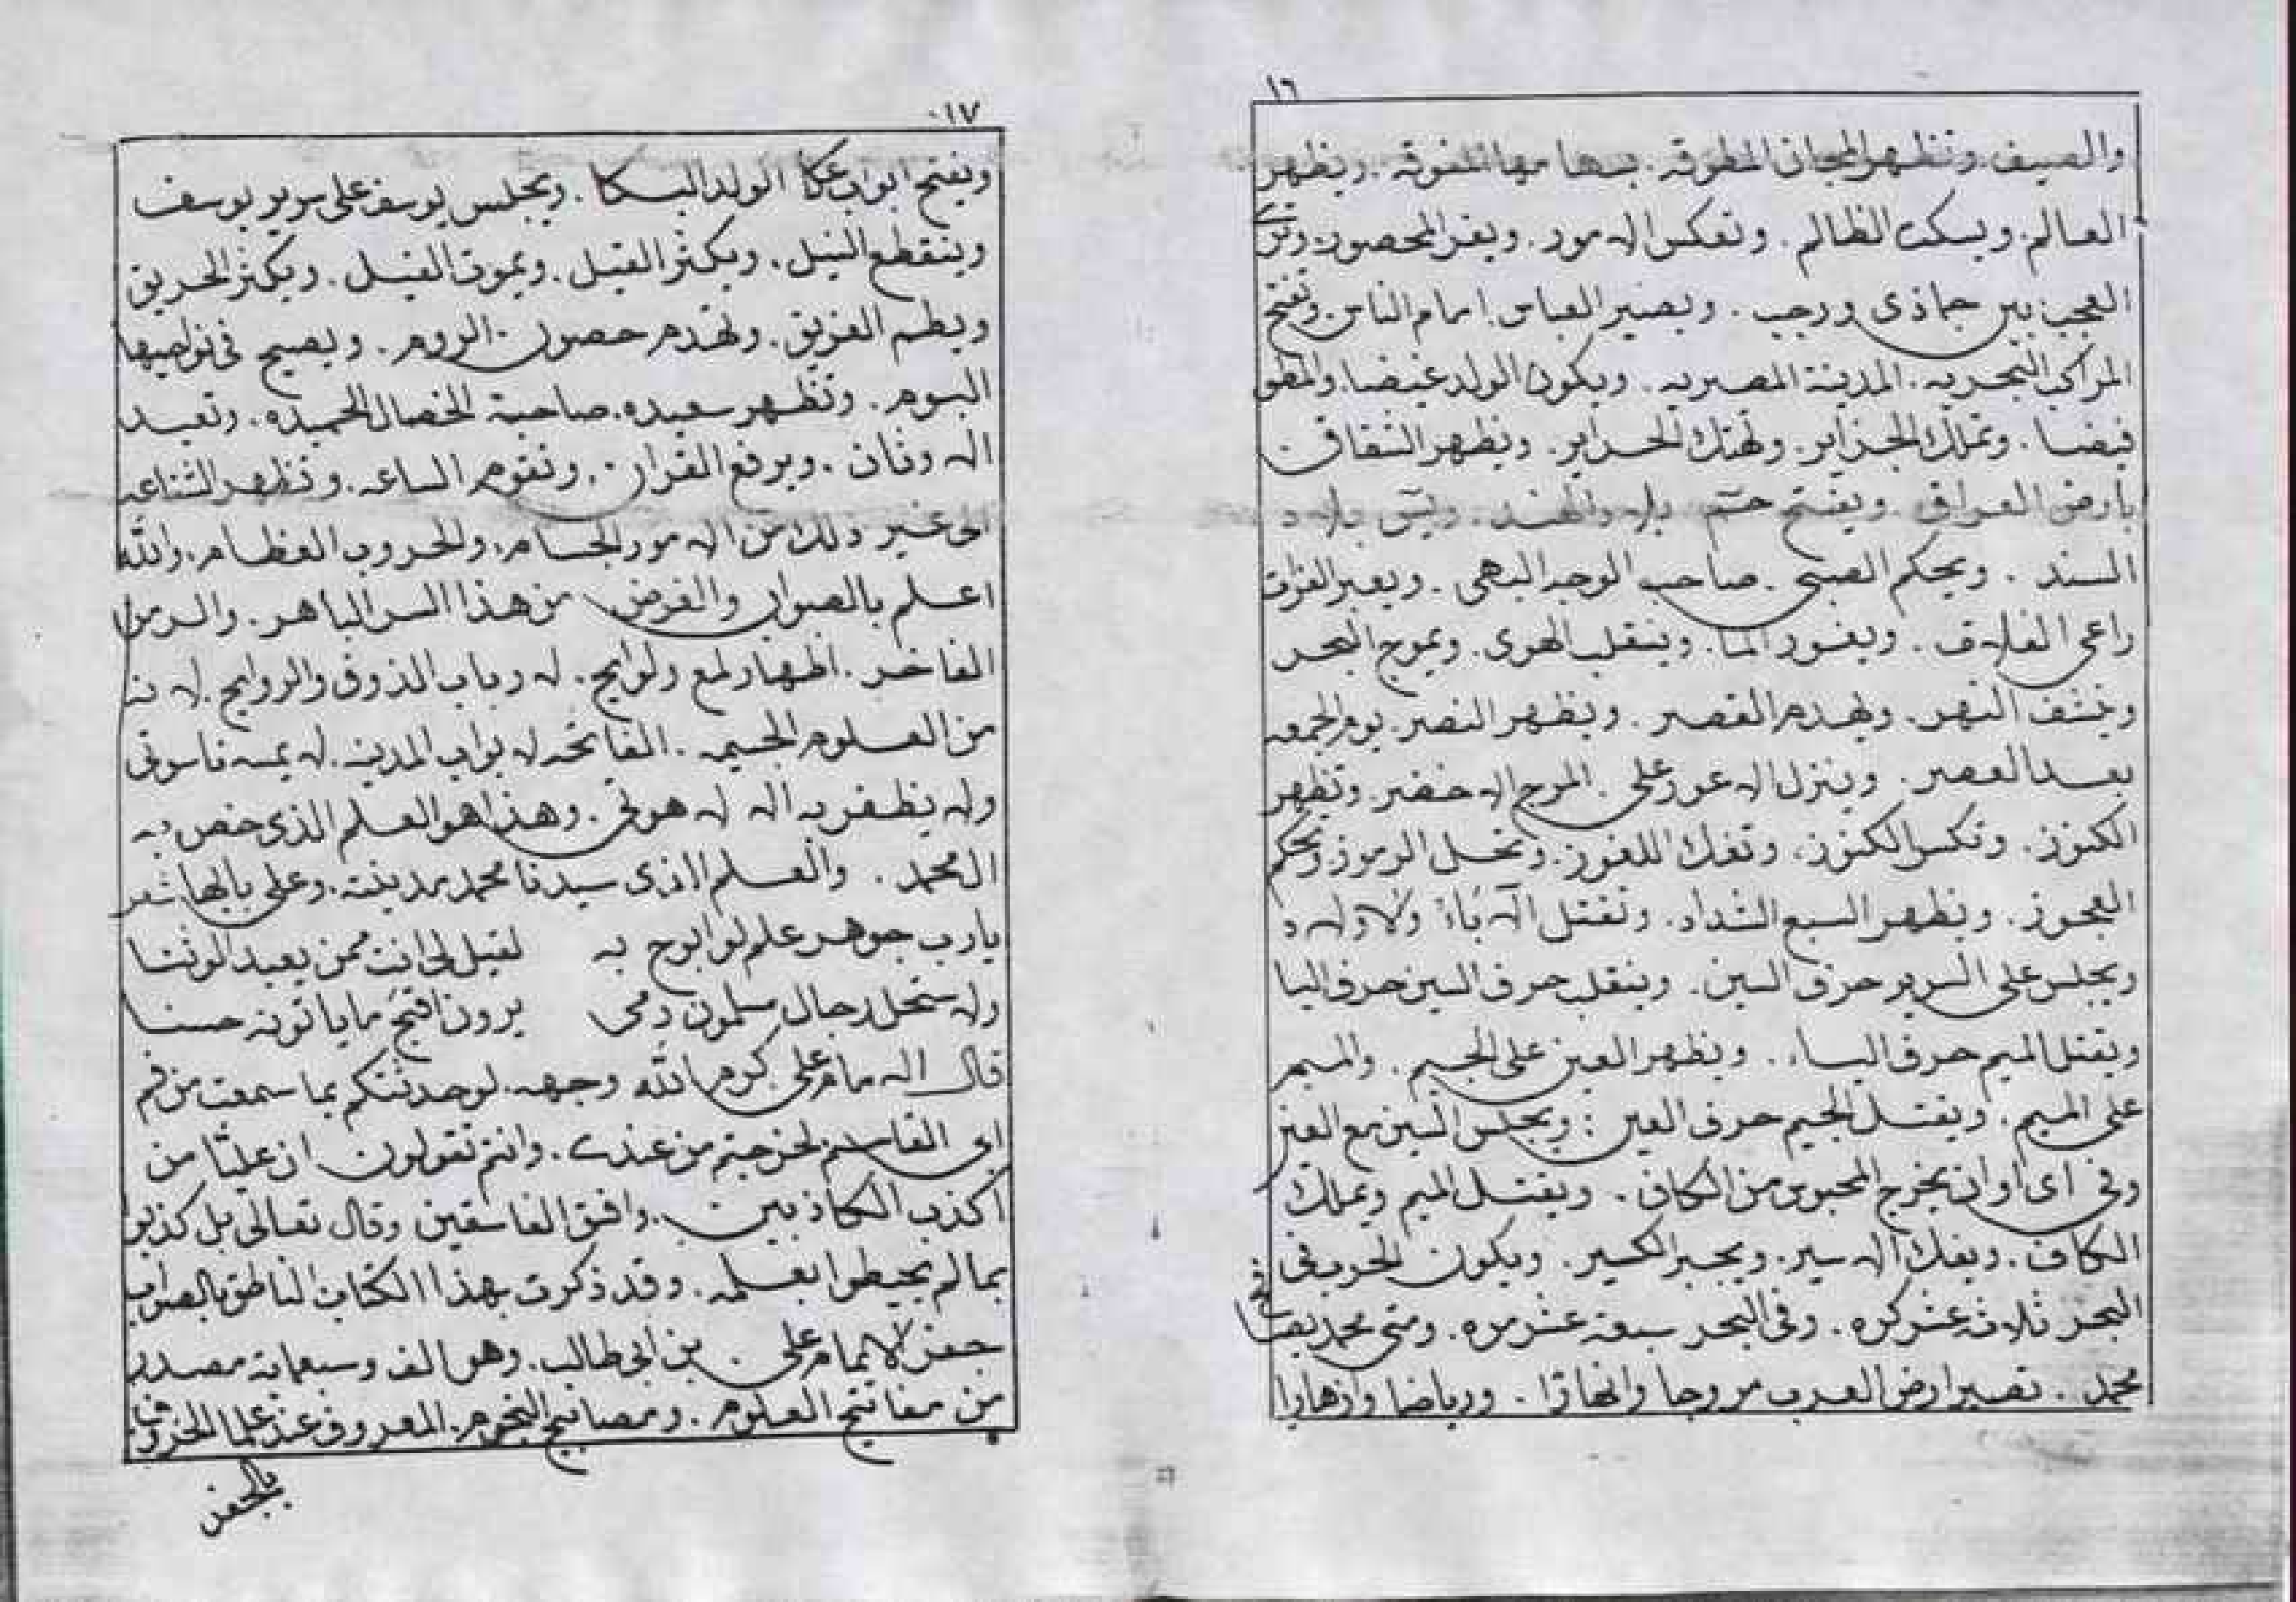 ١٦
والصيف. وتظهر المجان المطرقه. بسهامها المفوقه. ويظهر
العالم. ويسكت الظالم. وتعكس الامور. ويفر المحصور. وترى
العجب بين جماذى ورجب. ويصير العباس امام الناس. وتفتح
المراكب البحريه. المدينة المصريه. ويكون الولد غيضا. والمطر
فيضا. وتملك الجزاير. وتهتك الحراير. ويظهر الشقاق.
بأرض العراق. ويفتح حم بلاد الهند. ويس بلاد
السند. ويحكم الصبى. صاحب الوجه البهى. ويعبر الفرات
راعى الفلاة. ويغور الما. وينقلب الهوى. ويموج البحر
وينشف النهر. ويهدم القصر. ويظهر النصر. يوم الجمعه
بعد العصر. وينزل الاعور على المرج الاخضر. وتظهر
الكنوز. وتكسر الكنوز. وتفك اللغوز. وتحل الرموز. وتحكم
العجوز. ويظهر السبع الشداد. وتقتل الآباء والاولاد
ويجلس على السرير حرف السين. وينقلب حرف السين حرف اليا
ويقتل الميم حرف الياء. ويظهر العين على الجيم. والميم
على الميم. ويقتل الجيم حرف العين: ويجلس السين مع العين
وفى اى اوان يخرج المحبوس من الكاف. ويقتل الميم ويملك
الكاف. ويفك الاسير. ويجبر الكسير. ويكون الحرب فى
البحر ثلاثة عشر كره. وفى البحر سبعة عشر مره. ومتى محمد
محمد. تصير ارض العرب مروجا وانهارًا. ورياضا وازهارا
١٧
ويفتح ابواب عكا الولد البكا. ويجلس يوسف على سرير يوسف
وينقطع النيل. ويكثر القيل. ويموت الفيل. ويكثر الحريق
ويطم الغريق. وتهدم حصون الروم. ويصيح فى نواحيها
البوم. وتظهر سعيده. صاحبة الخصال الحميده. وتعبد
الاوثان. ويرفع القران. وتقوم الساعه. وتظهر الشناعه
الى غير ذلك من الامور الجسام. والحروب العظام. والله
اعلم بالصواب والغرض من هذا السر الباهر. والرمز
الفاخر. اظهار لمع ولوايح. لارباب الذوق والروايح. لانه
من العلوم الجسيمه. الفاتحه لابواب المدينه. لا يمسه ناسوتى
ولا يظفر به الا لاهوتى. وهذا هو العلم الذى خص به
ال محمد. والعلم الذى سيدنا محمد مدينته. وعلى بابها شعر
يارب جوهر علم لو ابوح به لقيل لى انت ممن يعبد الوثنا
ولاستحل رجال مسلمون دمى يرون اقبح ما ياتونه حسنا
قال الامام على كرم الله وجهه. لو حدثتكم بما سمعت من فم
ابى القاسم لخرجتم من عندى. وانتم تقولون ان عليًا من
اكذب الكاذبين. وافسق الفاسقين وقال تعالى بل كذبوا
بما لم يحيطوا بعلمه. وقد ذكرت بهذا الكتاب الناطق بالصواب
جفر لامام على بن ابى طالب. وهو الف وسبعماية مصدر
من مفاتيح العلوم. ومصابيح النجوم. المعروف عند علما الحروف
بالجفر